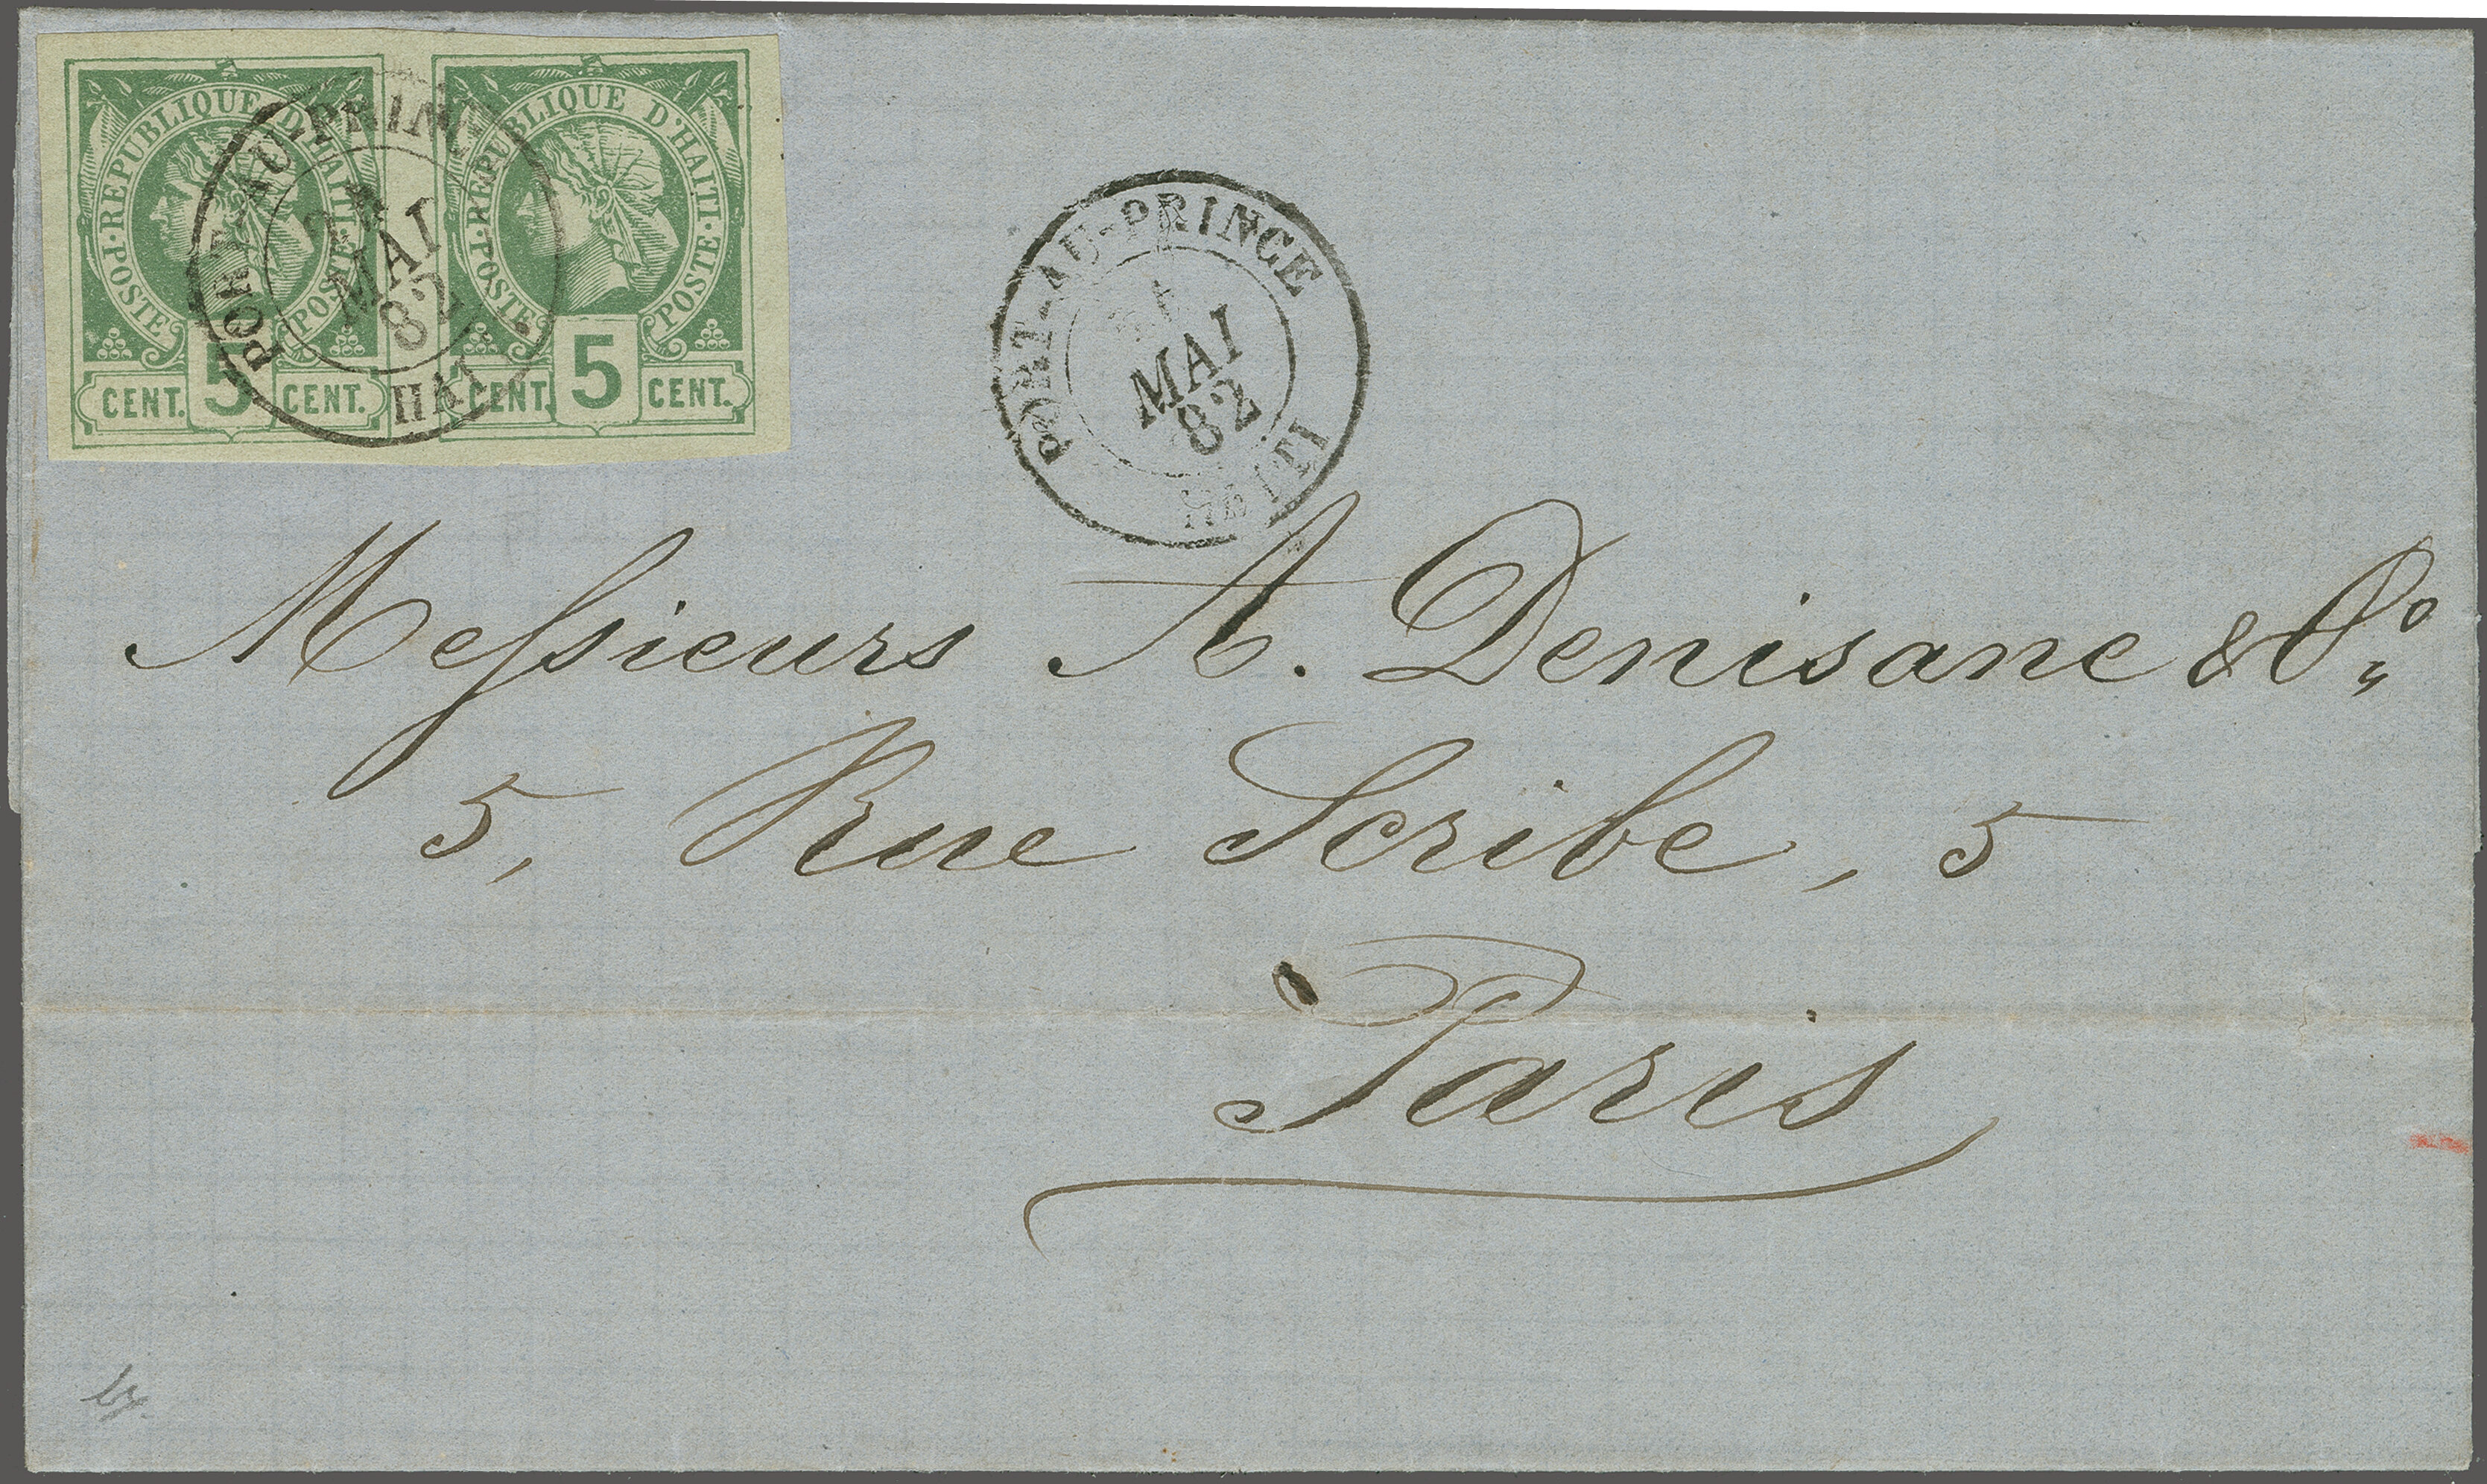 RÉPUBLIQUE D'HAÏTI
POSTE POSTE
CENT. 5 CENT.
RÉPUBLIQUE D'HAÏTI
POSTE POSTE
CENT. 5 CENT.
PORT-AU-PRINCE
MAI
82
HAITI
PORT-AU-PRINCE
MAI
82
HAITI
Messieurs A. Denisane & Co
5, Rue Scribe, 5
Paris